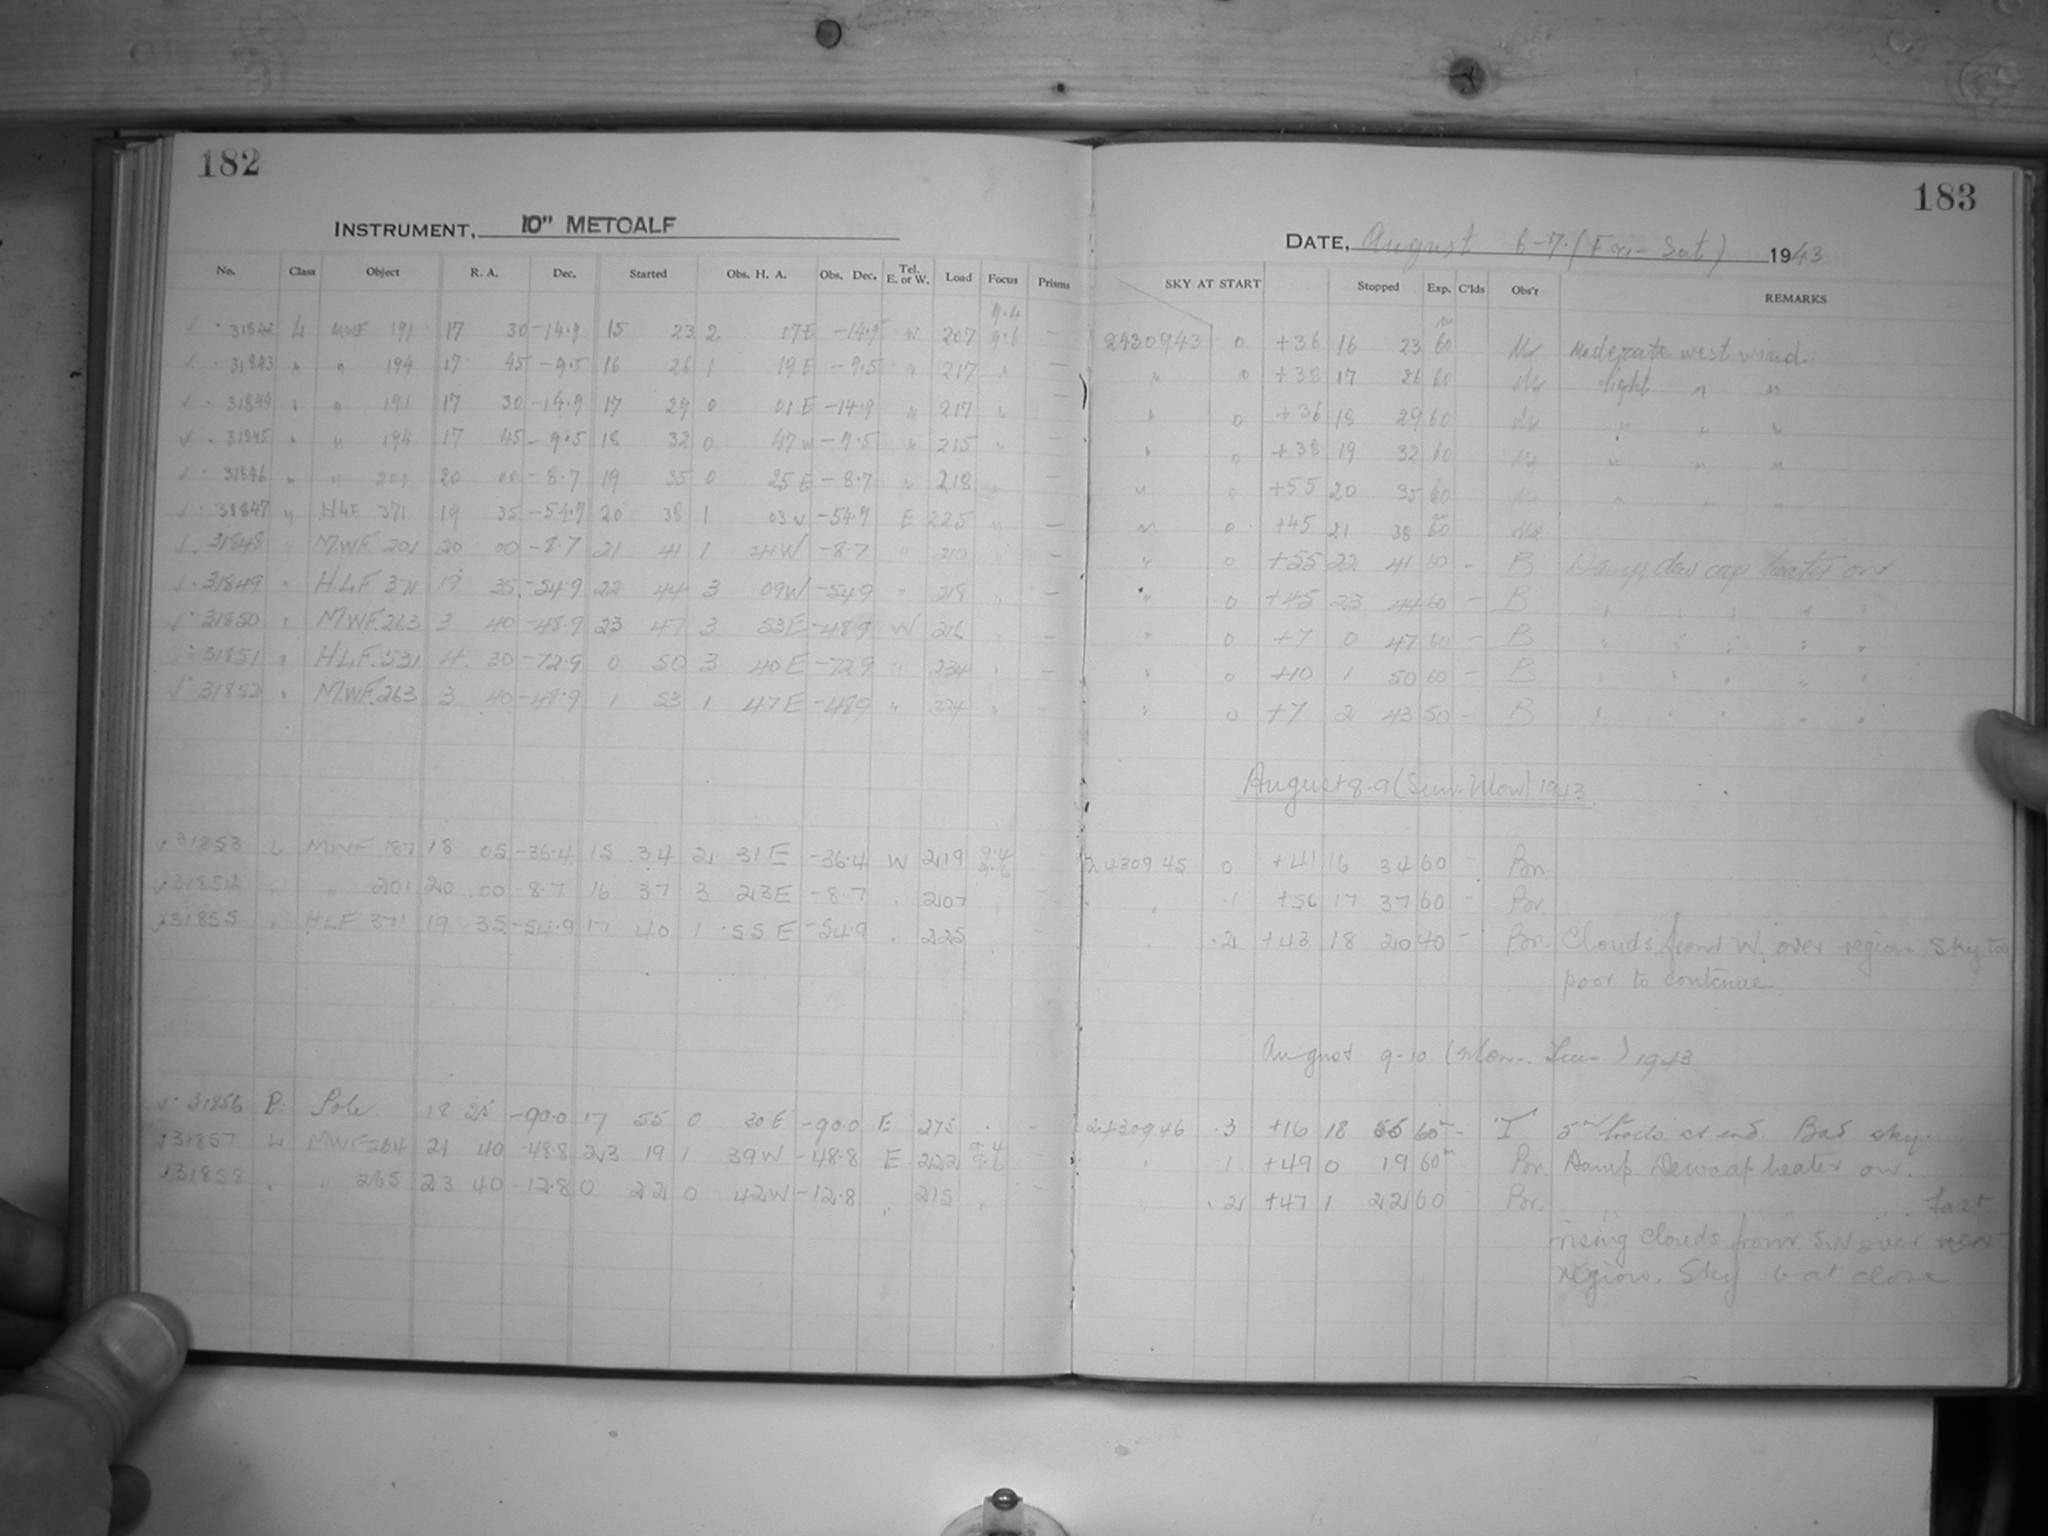 182
INSTRUMENT, 10" METCALF
No. Class Object R. A. Dec. Started Obs. H. A. Obs. Dec. Tel. E. or W. Load Focus Prisms
9.4
31842 L MWF 191 17 30 -14.9 15 23 2 07E -14.9 W 207 9.6 —
31843 " " 194 17 45 -9.5 16 26 1 19E -9.5 " 217 " —
31844 " " 191 17 30 -14.9 17 29 0 01E -14.9 " 217 " —
31845 " " 194 17 45 -9.5 18 32 0 47W -9.5 " 215 " —
31846 " " 201 20 00 -8.7 19 35 0 25E -8.7 " 218 " —
31847 " HLF 371 19 35 -54.9 20 38 1 03W -54.9 E 225 " —
31848 " MWF 201 20 00 -8.7 21 41 1 41W -8.7 " 210 " —
31849 " HLF 371 19 35 -54.9 22 44 3 09W -54.9 " 218 " —
31850 " MWF.263 3 40 -48.9 23 47 3 53E -48.9 W 216 " —
31851 " HLF.531 4 30 -72.9 0 50 3 40E -72.9 " 234 " —
31852 " MWF.263 3 40 -48.9 1 53 1 47E -48.9 " 224 " —
31853 L MWF 187 18 05 -36.4 15 34 2 31E -36.4 W 219 9.4 9.6 —
31854 " " 201 20 00 -8.7 16 37 3 23E -8.7 " 207 " —
31855 " HLF 371 19 35 -54.9 17 40 1 55E -54.9 " 225 " —
31856 P Pole 18 25 -90.0 17 55 0 30E -90.0 E —
31857 L MWF 264 21 40 -48.8 23 19 1 39W -48.8 E 222 9.4 9.6
31858 " " 265 23 40 -12.8 0 22 0 42W -12.8 " 215 " —
183
DATE, August 6-7. (Fri.- Sat.) 1943
SKY AT START Stopped Exp. C'lds Obs'r REMARKS
2430943 0 +36 16 23 60 m Moderate west wind.
" " +38 17 26 60 light " "
" 0 +36 18 29 60 " " "
" 0 +38 19 32 60 " " "
" 0 +55 20 35 60 " " "
" 0 +45 21 38 60
" 0 +55 22 41 60 - B Damp, dew cap heater on
" 0 +45 23 44 60 - B " " " " "
" 0 +7 0 47 60 - B " " " " "
" 0 +10 1 50 60 - B " " " " "
" 0 +7 2 43 50 - B " " " " "
August 8-9 (Sun-Mon) 1943
2430945 0 +41 16 34 60 - Br.
" .1 +56 17 37 60 - Br.
" .2 +43 18 20 40 - Br. Clouds from W. over region Sky too
poor to continue
August 9-10 (Mon.- Tues.) 1943
2430946 .3 +16 18 55 60m - T 5m trails at end. Bad sky.
" .1 +49 0 19 60m Br. Damp. Dewcap heater on.
" .2 +47 1 22 60 Br. " " " ". Fast
rising clouds from S.W over
region. Sky .6 at close